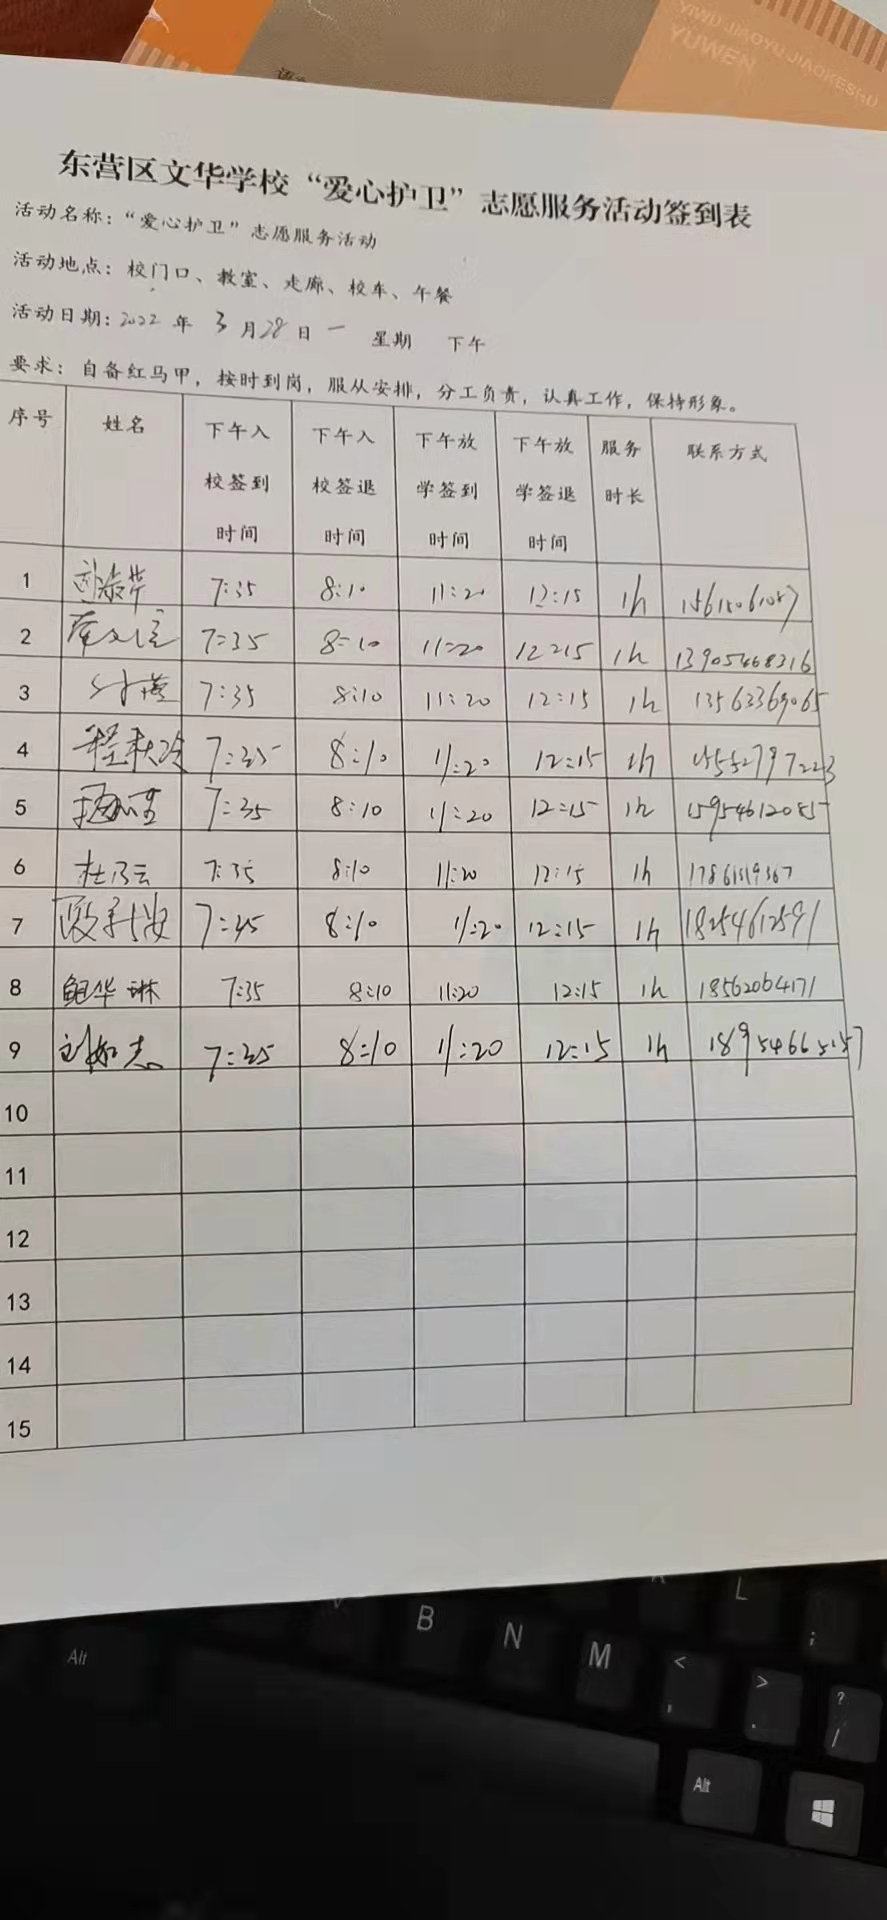 YIWU JIAOYU JIAOKESHU
YUWEN
东营区文华学校“爱心护卫”志愿服务活动签到表
活动名称：“爱心护卫”志愿服务活动
活动地点：校门口、教室、走廊、校车、午餐
活动日期：2022年 3月28日 一 星期 下午
要求：自备红马甲，按时到岗，服从安排，分工负责，认真工作，保持形象。
序号 姓名 下午入校签到时间 下午入校签退时间 下午放学签到时间 下午放学签退时间 服务时长 联系方式
1 7:35 8:10 11:20 12:15 1h
2 7:35 8:10 11:20 12:15 1h 13905468216
3 7:35 8:10 11:20 12:15 1h 13563369065
4 7:35 8:10 11:20 12:15 1h 15552797223
5 7:35 8:10 11:20 12:15 1h 15954612085
6 杜乃云 7:35 8:10 11:20 12:15 1h
7 7:35 8:10 11:20 12:15 1h 18254612591
8 鲍华琳 7:35 8:10 11:20 12:15 1h 18562064171
9 刘如志 7:35 8:10 11:20 12:15 1h 18954665157
10
11
12
13
14
15
L
B N M < ,
> .
? /
;
Alt
Alt